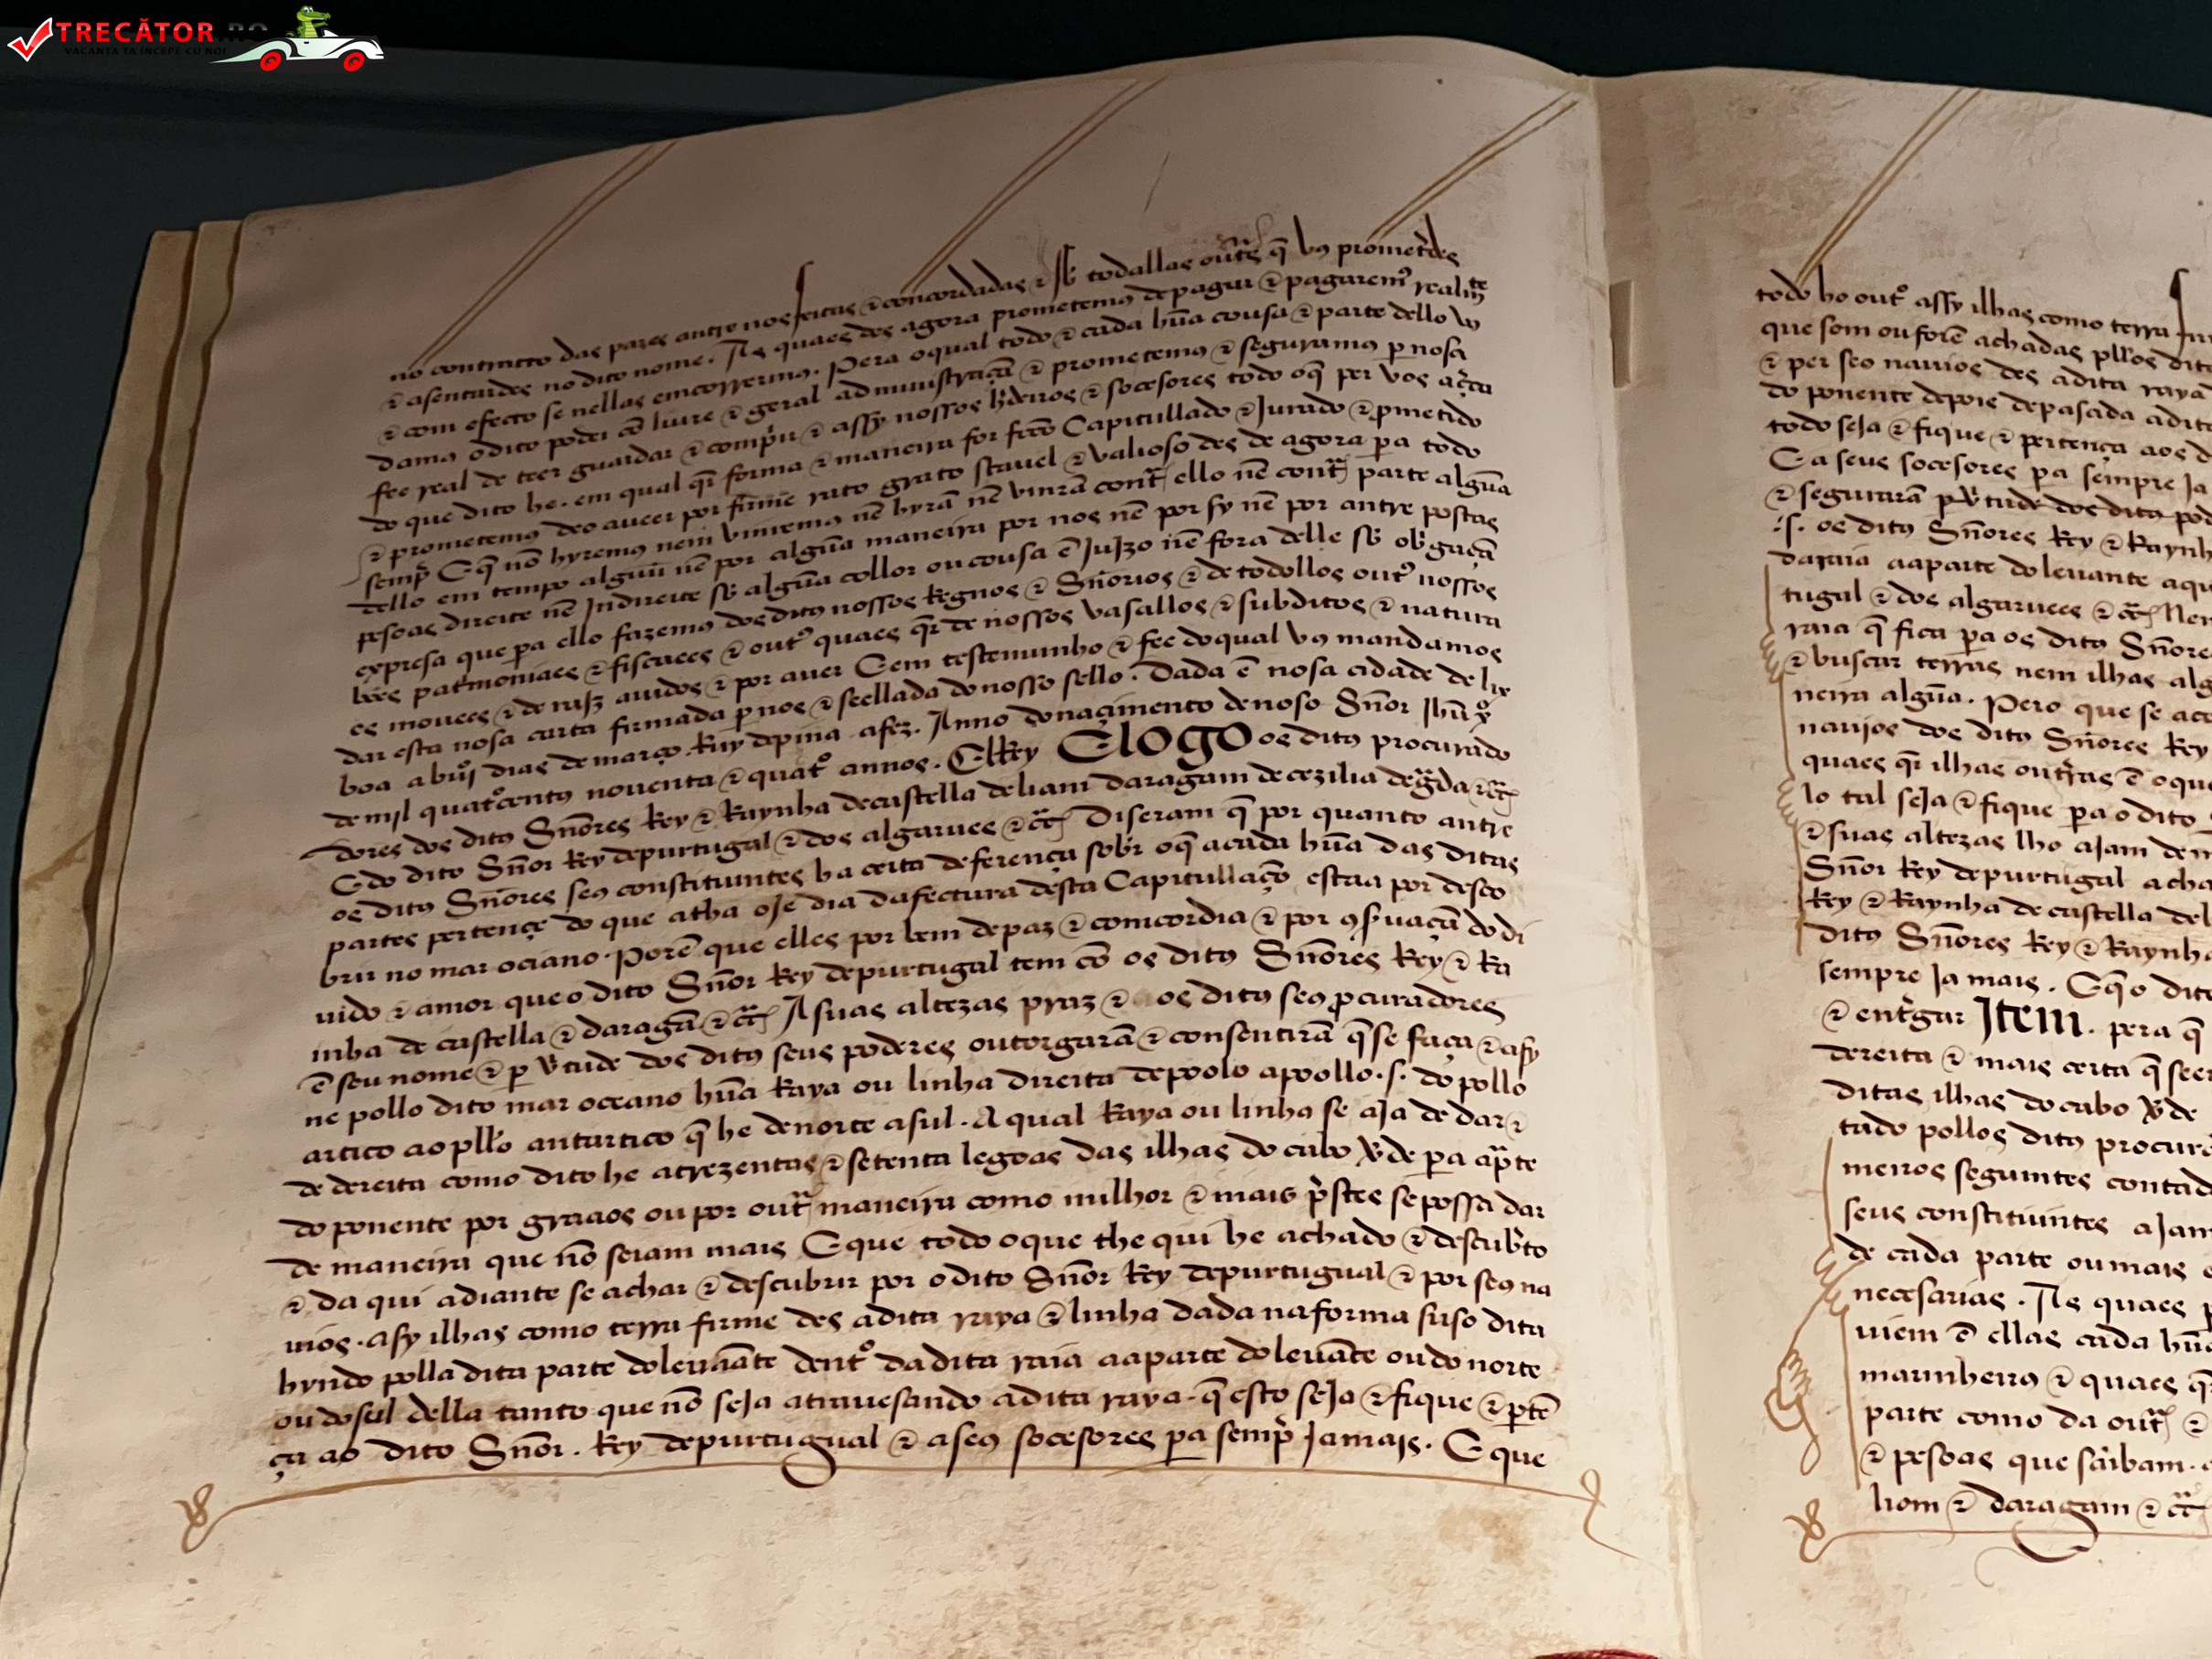 TRECĂTOR.RO
VACANȚA TA ÎNCEPE CU NOI
no contracto das pazes antre nos feitas ⁊ concordadas ⁊ sb̃ todallas out̃s q̃ vos prometerdes
⁊ asentardes no dito nome. As quaes des agora prometemos de pagar ⁊ pagarem̃ realmte
⁊ com efecto se nellas emcorrermos. Pera o qual todo ⁊ cada hũa cousa ⁊ parte dello vos
damos o dito poder cõ liure ⁊ geral administraçã ⁊ prometemos ⁊ seguramos p nosa
fee real de teer guardar ⁊ comprir ⁊ assy nossos herdeiros ⁊ socesores todo oq̃ per vos açerca
do que dito he. em qual qr forma ⁊ maneira for fecto Capitullado ⁊ Jurado ⁊ pmetido
⁊ prometemos deo aueer por firme rato grato stauel ⁊ valioso des de agora pa todo
sempr̃ E q̃ nõ hyremos nem vinremos nẽ hyrã nẽ vinrã contr̃ ello nẽ contr̃ parte algũa
dello em tempo alguũ nẽ por algũa maneira por nos nẽ por sy nẽ por antre postas
pesoas direite nẽ Indireite sb̃ algũa collor ou cousa ẽ Juizo nẽ fora delle sb̃ obrgaçã
expresa que pa ello fazemos dos ditos nossos Regnos ⁊ Sñorios ⁊ de todollos outros nossos
bẽes patrimoniaes ⁊ fiscaees ⁊ outros quaes qr de nossos vasallos ⁊ subditos ⁊ natura
es mouees ⁊ de raiz auidos ⁊ por auer E em testemunho ⁊ fee do qual vos mandamos
dar esta nosa carta firmada p nos ⁊ seellada do nosso sello. Dada ẽ nosa cidade de lix
boa a biij dias de março. Ruy de pina a fez. Anno do naçimento de noso Sñor Jhũ xº
de mjl quatrocentos nouenta ⁊ quatro annos. El Rey E logo os ditos procurado
dores dos ditos Sñores Rey ⁊ Raynha de castella de liam daragam de cezilia de grada ⁊ cetr̃
E do dito Sñor Rey de purtugal ⁊ dos algarues ⁊ cetr̃ Diseram q̃ por quanto antre
os ditos Sñores seos constituintes ha certa deferença sobr oq̃ a cada hũa das ditas
partes pertençe do que atha oje dia da fectura desta Capitullaçõ estaa por desco
brir no mar ociano. Porẽ que elles por bem de paz ⁊ comcordia ⁊ por cõseruaçã do di
uido ⁊ amor que o dito Sñor Rey de purtugal tem cõ os ditos Sñores Rey ⁊ Ra
inha de castella ⁊ daragã ⁊ cetr̃ A suas altezas praz ⁊ os ditos seos pcuradores
ẽ seu nome ⁊ p vtude dos ditos seus poderes outorgarã ⁊ consentirã q̃ se faça ⁊ asy
ne pollo dito mar oceano hũa Raya ou linha direita de poolo a poollo .s. do pollo
artico ao pllo antartico q̃ he de norte a sul. A qual Raya ou linha se aja de dar ⁊
de dereita como dito he a trezentas ⁊ setenta legoas das ilhas do cabo vde pa a pte
do ponente por graaos ou por outr̃ maneira como milhor ⁊ mais prstes se possa dar
de maneira que nõ seiam mais E que todo o que the qui he achado ⁊ descubrto
⁊ da qui adiante se achar ⁊ descubrir por o dito Sñor Rey de purtugual ⁊ por seos na
uios. asy ilhas como terra firme des a dita raya ⁊ linha dada na forma suso dita
hyndo polla dita parte do leuãnte dentro da dita raia aa parte do leuãte ou do norte
ou do sul della tanto que nõ seja atrauesando a dita raya. q̃ esto seja ⁊ fique ⁊ ptẽ
ça ao dito Sñor. Rey de purtugual ⁊ a seos socesores pa sempr̃ Jamais. E que
todo ho outro assy ilhas como terra
que som ou forẽ achadas pllos dito
⁊ per seo nauios des a dita raya
do ponente depois de pasada a dita
todo seja ⁊ fique ⁊ pertença aos
E a seus socesores pa sempre Ja
⁊ segurarã p vtude dos ditos pod
.s. os ditos Sñores Rey ⁊ Raynh
da raia aa parte do leuante aqu
tugal ⁊ dos algarues ⁊ cetr̃ Nem
raia q̃ fica pa os dito Sñores
⁊ buscar terras nem ilhas alg
neira algũa. Pero que se aco
nauijos dos ditos Sñores Rey
quaes qr ilhas ou trras ẽ o que
lo tal seja ⁊ fique pa o dito
⁊ suas altezas lho ajam de m
Sñor Rey de purtugal acha
Rey ⁊ Raynha de castella de l
ditos Sñores Rey ⁊ Raynha
sempre Ja mais. E q̃ o dito
⁊ entrgar Item. pera q̃
dereita ⁊ mais certa q̃ seer
ditas ilhas do cabo vde
tado pollos ditos procura
menos seguintes contad
seus constituintes ajam
de cada parte ou mais
necesarias. As quaes p
uiem ẽ ellas cada hũa
marinheiros ⁊ quaes q̃
parte como da outr̃ ⁊
⁊ pesoas que saibam.
liom ⁊ daragam ⁊ cetr̃